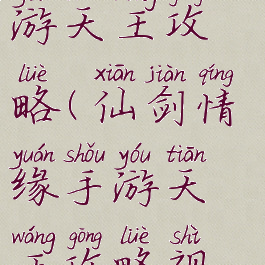 游天王攻
lüè xiān jiàn qíng
略(仙剑情
yuán shǒu yóu tiān
缘手游天
wáng gōng lüè shì